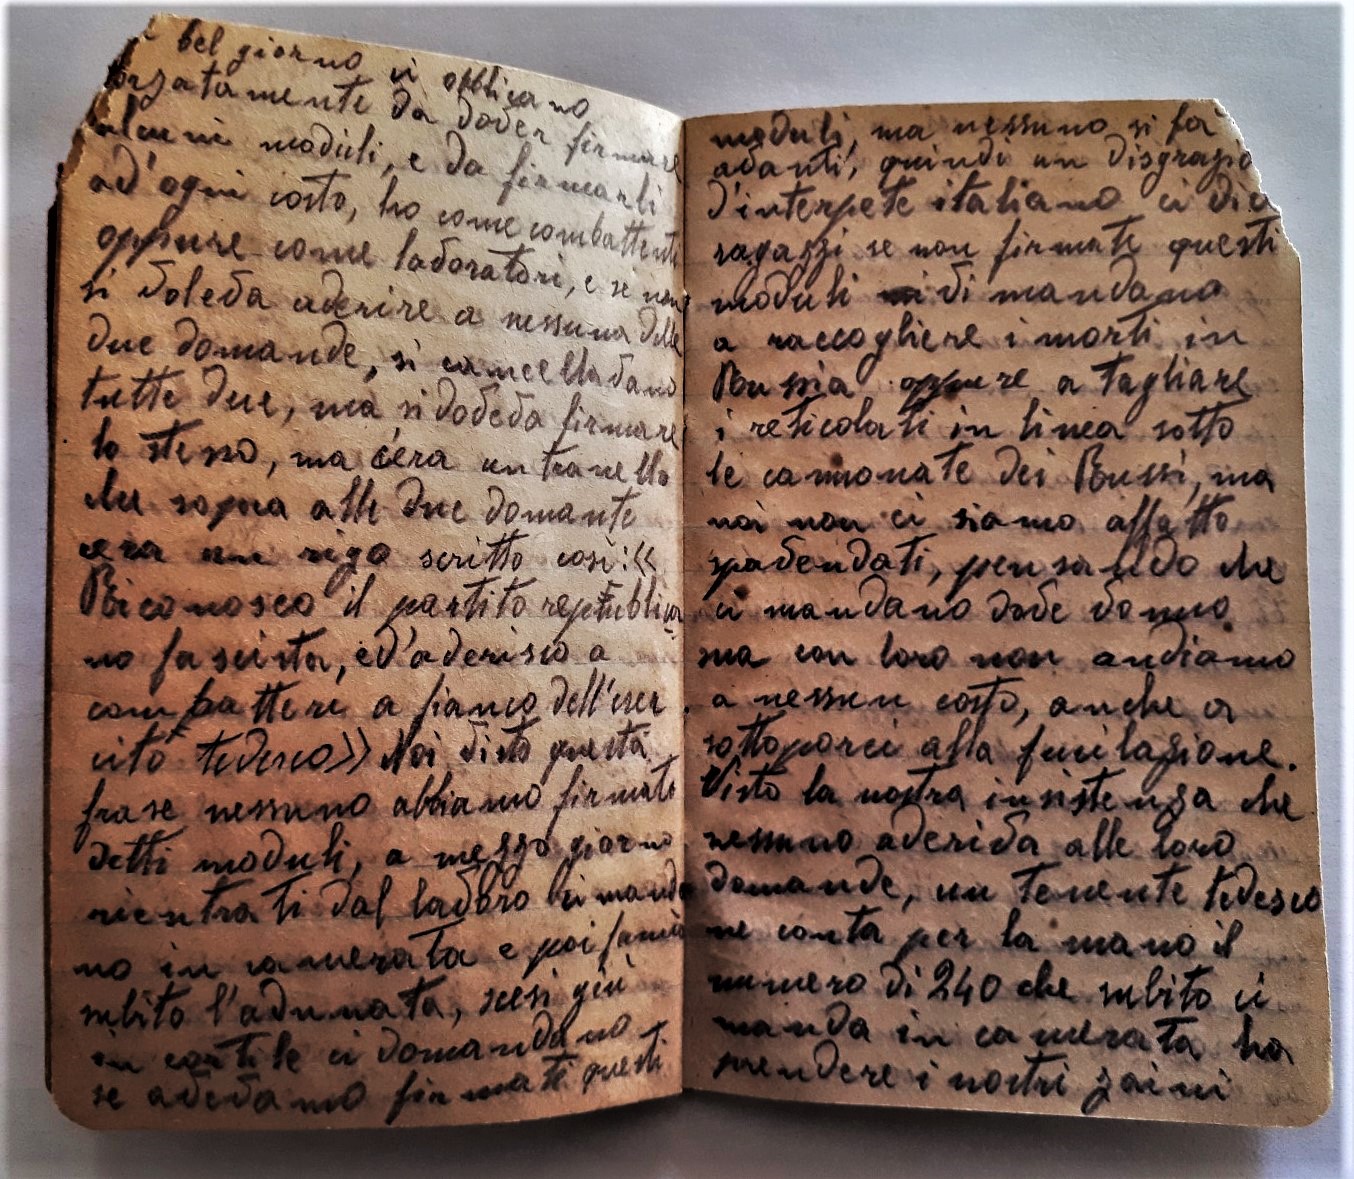 bel giorno ci obblicano
orzatamente da dover firmare
alcuni moduli, e da firmarli
ad'ogni costo, ho come combattenti
oppure come lavoratori, e se non
si voleva aderire a nessuna delle
due domande, si cancellavano
tutte due, ma si doveva firmare
lo stesso, ma c'era un tranello
che sopra alle due domante
cera un rigo scritto così: «
Riconosco il partito republica
no fascista, ed'aderisco a
combattere a fianco dell'eser
cito tedesco» Noi visto questa
frase nessuno abbiamo firmato
detti moduli, a mezzo giorno
rientrati dal lavoro ci manda
no in camerata e poi fanno
subito l'adunata, scesi giù
in cortile ci domandano
se avevamo firmati questi
moduli, ma nessuno si fa
avanti, quindi un disgrazia
d'interpete italiano ci dice
ragazzi se non firmate questi
moduli vi mandano
a raccogliere i morti in
Russia oppure a tagliare
i reticolati in linea sotto
le cannonate dei Russi, ma
noi non ci siamo affatto
spavendati, pensando che
ci mandano dove vonno
ma con loro non andiamo
a nessun costo, anche a
sottoporci alla fucilazione.
Visto la nostra insistenza che
nessuno aderiva alle loro
domande, un tenente tedesco
ne conta per la mano il
numero di 240 che subito ci
manda in camerata ha
prendere i nostri zaini